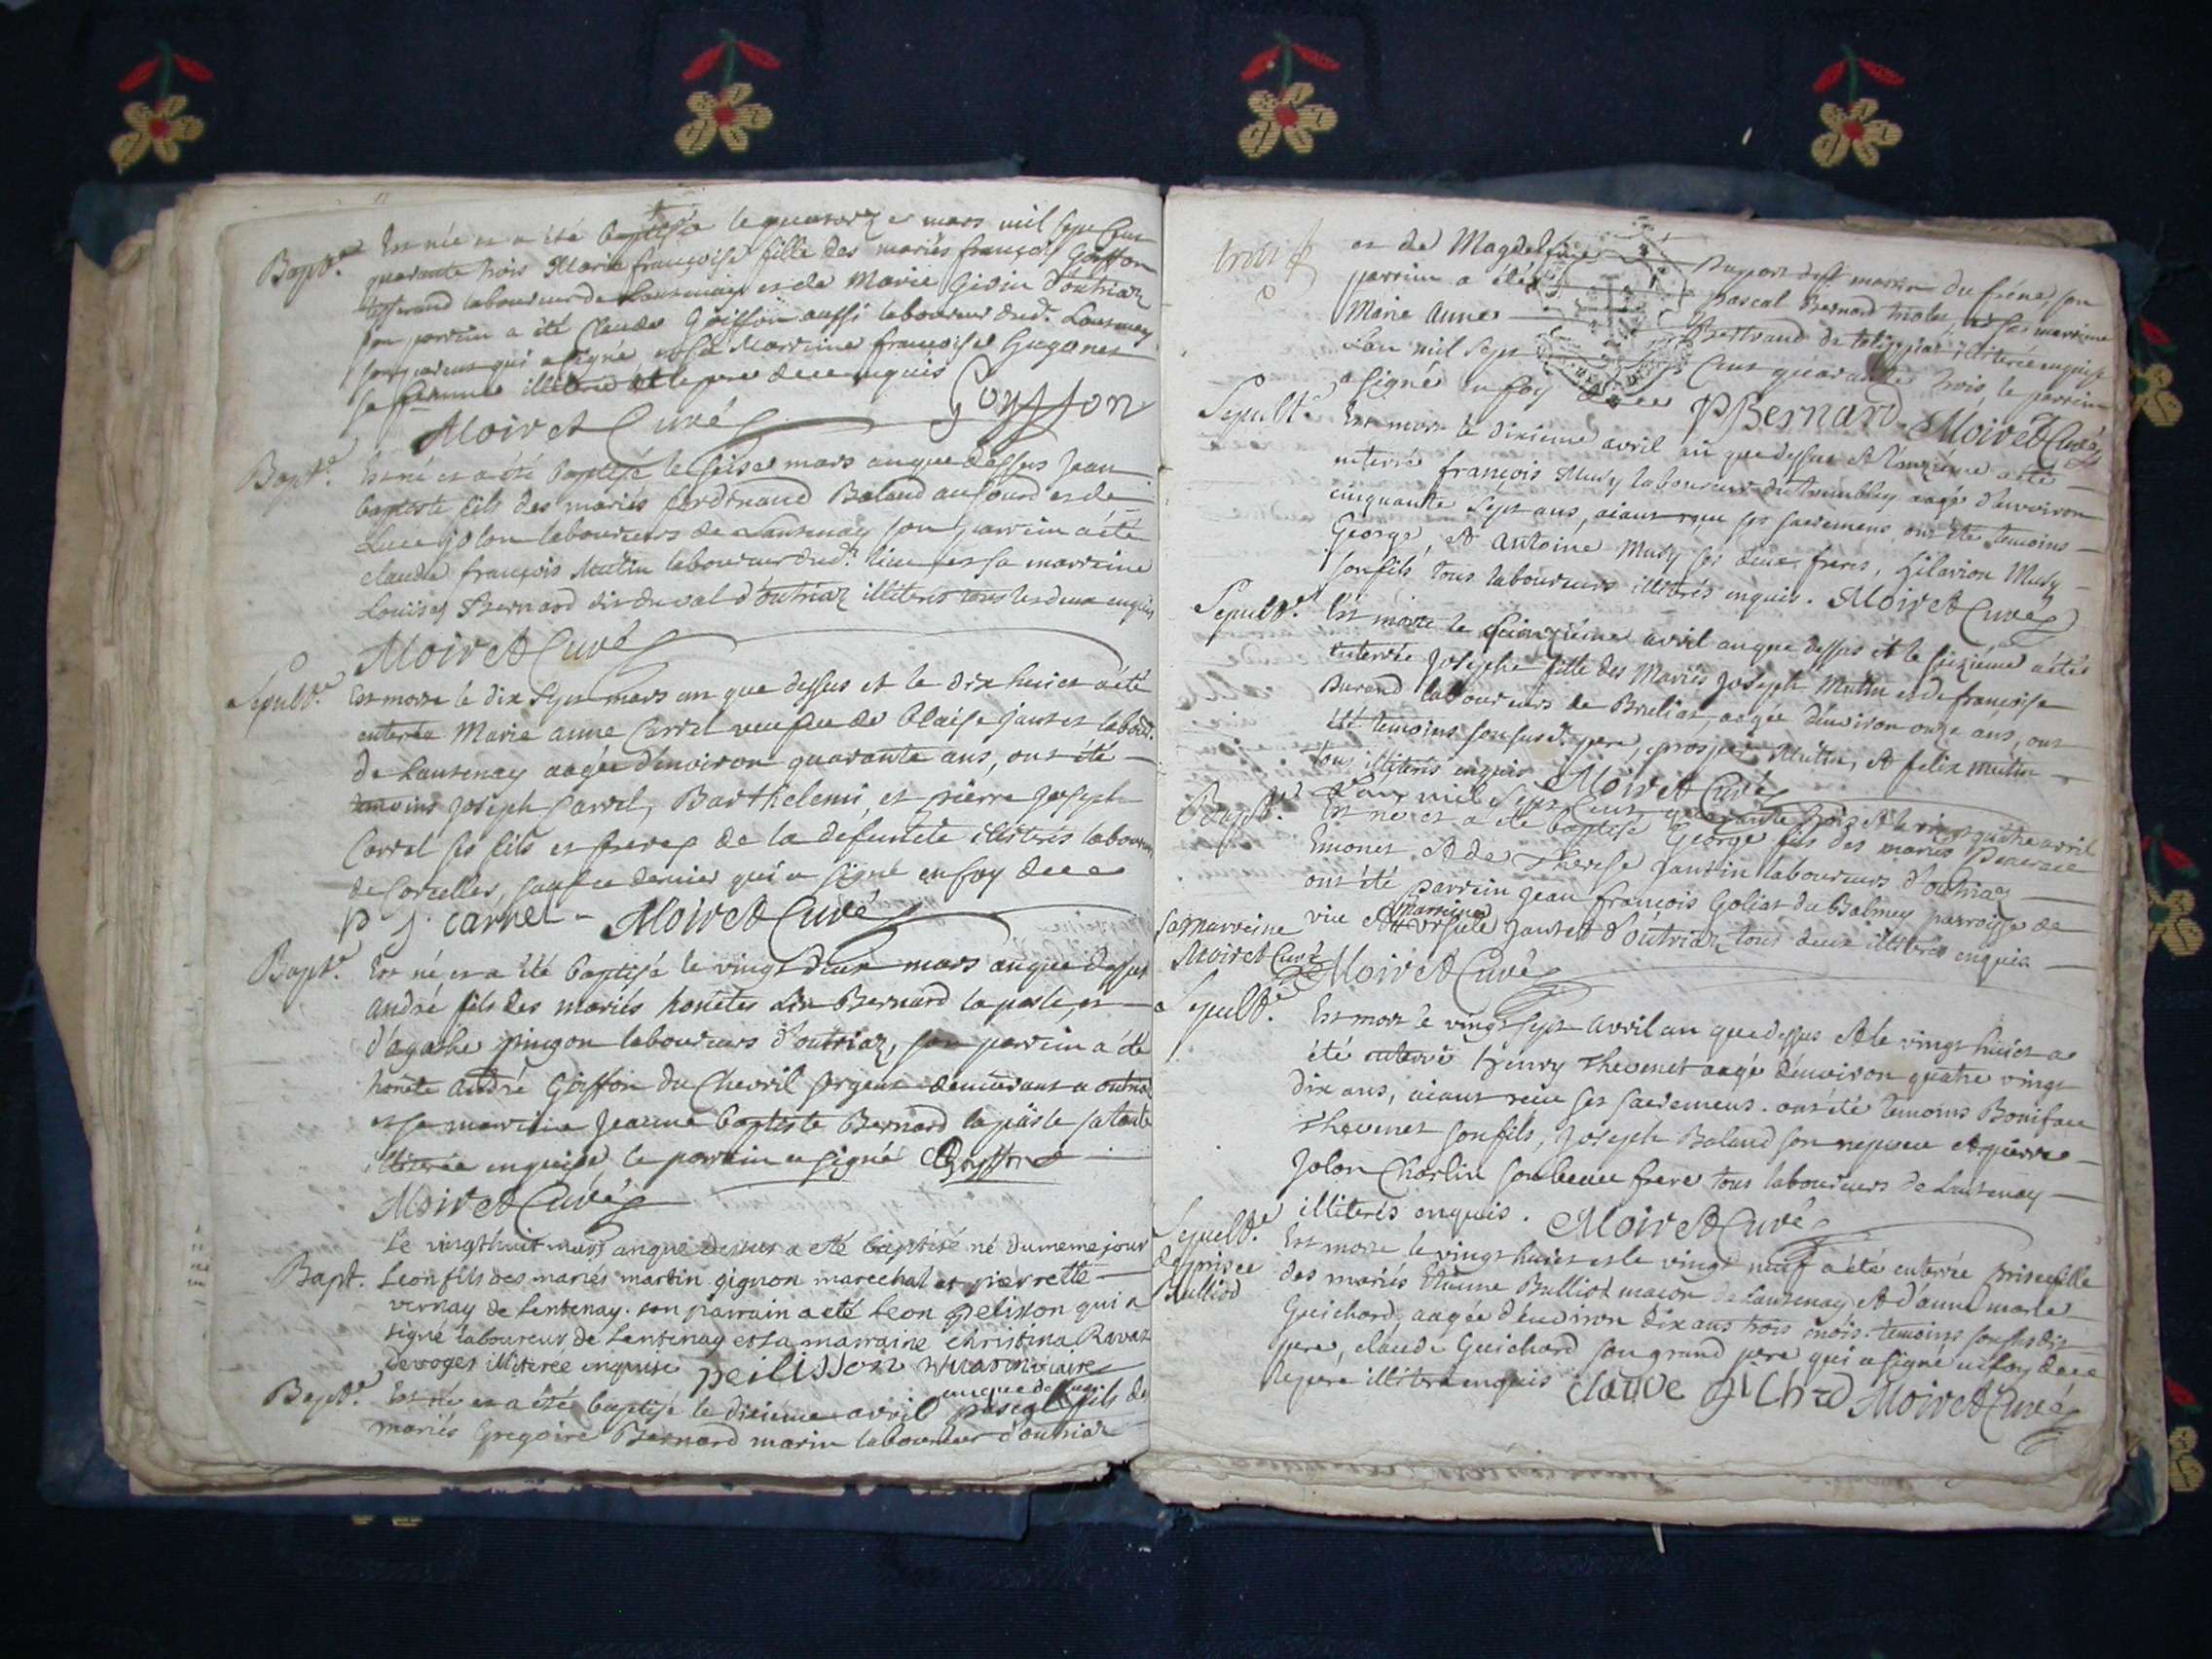 Bapt.e Est née et a été baptisée le quatorze mars mil sept cent
quarante trois Marie françoise fille des mariés françois Goiffon
tisserand laboureur de Lantenay et de Marie Gidin d'outriaz
son parrin a été Claude Goiffon aussi laboureur dud. Lantenay
qui a signé et sa Marrine françoise Guyonet
sa femme illiterée et le pere de ce enquis
Moiret Curé Goyffon
Bapt.e Est né et a été baptisé le seise mars an que dessus Jean
baptiste fils des mariés ferdinand Baland dufourd et de
Luce jolon laboureurs de Lantenay son parrin a été
claude françois Mutin laboureur dud.t lieu et sa marrine
Louise Bernard dit du val d'outriaz illiterés tous les deux enquis
Moiret Curé
Sepult.e Est morte le dix sept mars an que dessus et le dix huict a été
enterrée Marie anne Carrel veufve de blaise jantet labour.
de Lantenay aagée d'environ quarante ans, ont été
temoins joseph Carrel, Barthelemi, et pierre joseph
Carrel ses fils et freres de la defuncte illiterés laboureurs
de Corcelles, sauf ce dernier qui a signé en foy de ce
p j. carrel - Moiret Curé
Bapt.e Est né et a été baptisé le vingt deux mars an que dessus
andré fils des mariés honêtes Lin Bernard la paste, et
d'agathe pinçon laboureurs d'outriaz, son parrin a été
honête andré Goiffon du Chevril sergent demeurant a outriaz
et sa marrine Jeanne baptiste Bernard la pâste sa tante
illiterée enquise le parrin a signé AGoiffon
Moiret Curé
Le vingt huit mars an que dessus a eté baptisé né du meme jour
Bapt. Leon fils des mariés martin gignon marechal et pierrette
vernay de Lentenay. son parrain a eté Leon pelisson qui a
signé laboureur de Lentenay et sa marraine christina Ravat
de voges illiterée enquise peilisson vicaire
an que dessus
Bapt.e Est né et a été baptisé le dixieme avril pascal fils des
mariés Gregoire Bernard marin laboureur d'outriaz
trois
et de Magdelaine Dupont dit morin du fréne, son
parrin a été pascal Bernard et sa marrine
Marie Anne Bertrand de illiterée enquise
Lan mil sept Cent quarante trois, le parrin
a signé en foy de ce PBernard Moiret Curé
Sepult.e Est mort le dixieme avril an que dessus et l'onzieme a été
enterré françois Mudy laboureur du tremblay aagé d'environ
cinquante sept ans, aiant reçu ses sacremens, ont été temoins
George, et Antoine Mudy ses deux freres, hilarion Mudy
son fils tous laboureurs illiterés enquis. Moiret Curé
Sepult.e Est morte le quinzième avril an que dessus et le seizième a été
enterrée Josephe fille des Mariés Joseph Mutin et de françoise
Burand laboureurs de Bruliat, aagée d'environ onze ans, ont
été temoins son susd. pere, prosper Mutin, et felix mutin
tous illiterés enquis Moiret Curé
L'an mil sept Cent quarante trois et le vingt quatre avril
Bapt.e Est né et a été baptisé George fils des mariés
Emonet et de Therese Jantin laboureurs d'outriaz
ont été parrein Jean françois Goliat du Balmey parroisse de
vieu et marrine Ursule Jantet d'outriaz tous deux illiterés enquis
sa marreine
Moiret Curé
Moiret Curé
Sepult.e Est mort le vingt sept avril an que dessus et le vingt huict a
été enterré henry Thevenet aagé d'environ quatre vingt
dix ans, aiant reçu ses sacremens. ont été temoins Boniface
Thevenet son fils, joseph Baland son neveu et pierre
Jolon Charlin son beau frere tous laboureurs de Lantenay
illiterés enquis. Moiret Curé
Sepult.e
de prisce
Bulliod
Est morte le vingt huict et le vingt neuf a été enterrée prisce fille
des mariés Etienne Bulliod maçon de Lantenay et d'anne marie
Guichard, aagée d'environ dix ans trois mois. temoins son susdit
pere, claude Guichard son grand pere qui a signé en foy de ce
le pere illiteré enquis claude gichrd Moiret Curé